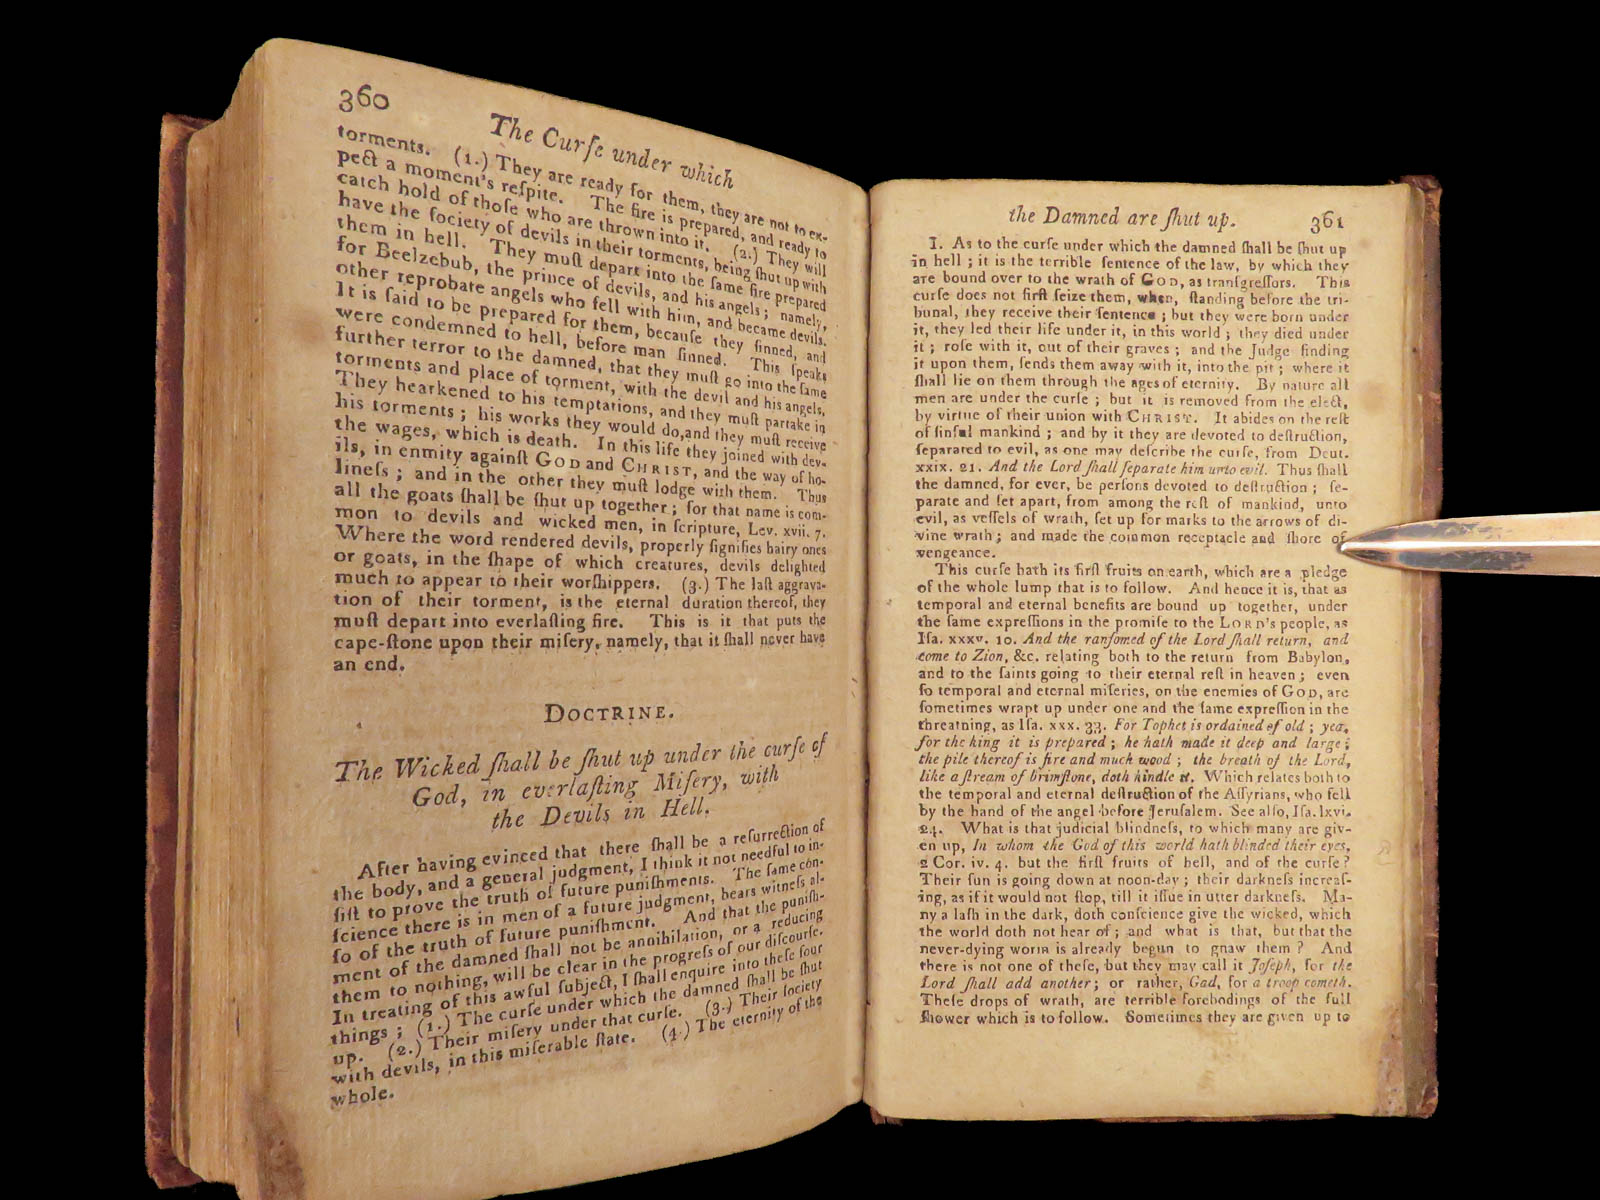 360
The Curſe under which
torments. (1.) They are ready for them, they are not to ex-
pect a moment's reſpite. The fire is prepared, and ready to
catch hold of thoſe who are thrown into it. (2.) They will
have the ſociety of devils in their torments, being ſhut up with
them in hell. They muſt depart into the ſame fire prepared
for Beelzebub, the prince of devils, and his angels; namely,
other reprobate angels who fell with him, and became devils.
It is ſaid to be prepared for them, becauſe they ſinned, and
were condemned to hell, before man ſinned. This ſpeaks
further terror to the damned, that they muſt go into the ſame
torments and place of torment, with the devil and his angels,
They hearkened to his temptations, and they muſt partake in
his torments; his works they would do,and they muſt receive
the wages, which is death. In this life they joined with dev-
ils, in enmity againſt GOD and CHRIST, and the way of ho-
lineſs; and in the other they muſt lodge with them. Thus
all the goats ſhall be ſhut up together; for that name is com-
mon to devils and wicked men, in ſcripture, Lev. xvii. 7.
Where the word rendered devils, properly ſignifies hairy ones
or goats, in the ſhape of which creatures, devils delighted
much to appear to their worſhippers. (3.) The laſt aggrava-
tion of their torment, is the eternal duration thereof, they
muſt depart into everlaſting fire. This is it that puts the
cape-ſtone upon their miſery, namely, that it ſhall never have
an end.
DOCTRINE.
The Wicked ſhall be ſhut up under the curſe of
God, in everlaſting Miſery, with
the Devils in Hell.
After having evinced that there ſhall be a reſurrection of
the body, and a general judgment, I think it not needful to in-
ſiſt to prove the truth of future puniſhments. The ſame con-
ſcience there is in men of a future judgment, bears witneſs al-
ſo of the truth of future puniſhment. And that the puniſh-
ment of the damned ſhall not be annihilation, or a reducing
them to nothing, will be clear in the progreſs of our diſcourſe.
In treating of this awful ſubject, I ſhall enquire into theſe four
things; (1.) The curſe under which the damned ſhall be ſhut
up. (2.) Their miſery under that curſe. (3.) Their ſociety
with devils, in this miſerable ſtate. (4.) The eternity of the
whole.
the Damned are ſhut up.
361
I. As to the curſe under which the damned ſhall be ſhut up
in hell; it is the terrible ſentence of the law, by which they
are bound over to the wrath of GOD, as tranſgreſſors. This
curſe does not firſt ſeize them, when, ſtanding before the tri-
bunal, they receive their ſentence; but they were born under
it, they led their life under it, in this world; they died under
it; roſe with it, out of their graves; and the Judge finding
it upon them, ſends them away with it, into the pit; where it
ſhall lie on them through the ages of eternity. By nature all
men are under the curſe; but it is removed from the elect,
by virtue of their union with CHRIST. It abides on the reſt
of ſinful mankind; and by it they are devoted to deſtruction,
ſeparated to evil, as one may deſcribe the curſe, from Deut.
xxix. 21. And the Lord ſhall ſeparate him unto evil. Thus ſhall
the damned, for ever, be perſons devoted to deſtruction; ſe-
parate and ſet apart, from among the reſt of mankind, unto
evil, as veſſels of wrath, ſet up for marks to the arrows of di-
vine wrath; and made the common receptacle and ſhore of
vengeance.
This curſe hath its firſt fruits on earth, which are a pledge
of the whole lump that is to follow. And hence it is, that as
temporal and eternal benefits are bound up together, under
the ſame expreſſions in the promiſe to the LORD's people, as
Iſa. xxxv. 10. And the ranſomed of the Lord ſhall return, and
come to Zion, &c. relating both to the return from Babylon,
and to the ſaints going to their eternal reſt in heaven; even
ſo temporal and eternal miſeries, on the enemies of GOD, are
ſometimes wrapt up under one and the ſame expreſſion in the
threatning, as Iſa. xxx. 33. For Tophet is ordained of old; yea,
for the king it is prepared; he hath made it deep and large;
the pile thereof is fire and much wood; the breath of the Lord,
like a ſtream of brimſtone, doth kindle it. Which relates both to
the temporal and eternal deſtruction of the Aſſyrians, who fell
by the hand of the angel before Jeruſalem. See alſo, Iſa. lxvi.
24. What is that judicial blindneſs, to which many are giv-
en up, In whom the God of this world hath blinded their eyes,
2 Cor. iv. 4. but the firſt fruits of hell, and of the curſe?
Their ſun is going down at noon-day; their darkneſs increaſ-
ing, as if it would not ſtop, till it iſſue in utter darkneſs. Ma-
ny a laſh in the dark, doth conſcience give the wicked, which
the world doth not hear of; and what is that, but that the
never-dying worm is already begun to gnaw them? And
there is not one of theſe, but they may call it Joſeph, for the
Lord ſhall add another; or rather, Gad, for a troop cometh.
Theſe drops of wrath, are terrible forebodings of the full
ſhower which is to follow. Sometimes they are given up to